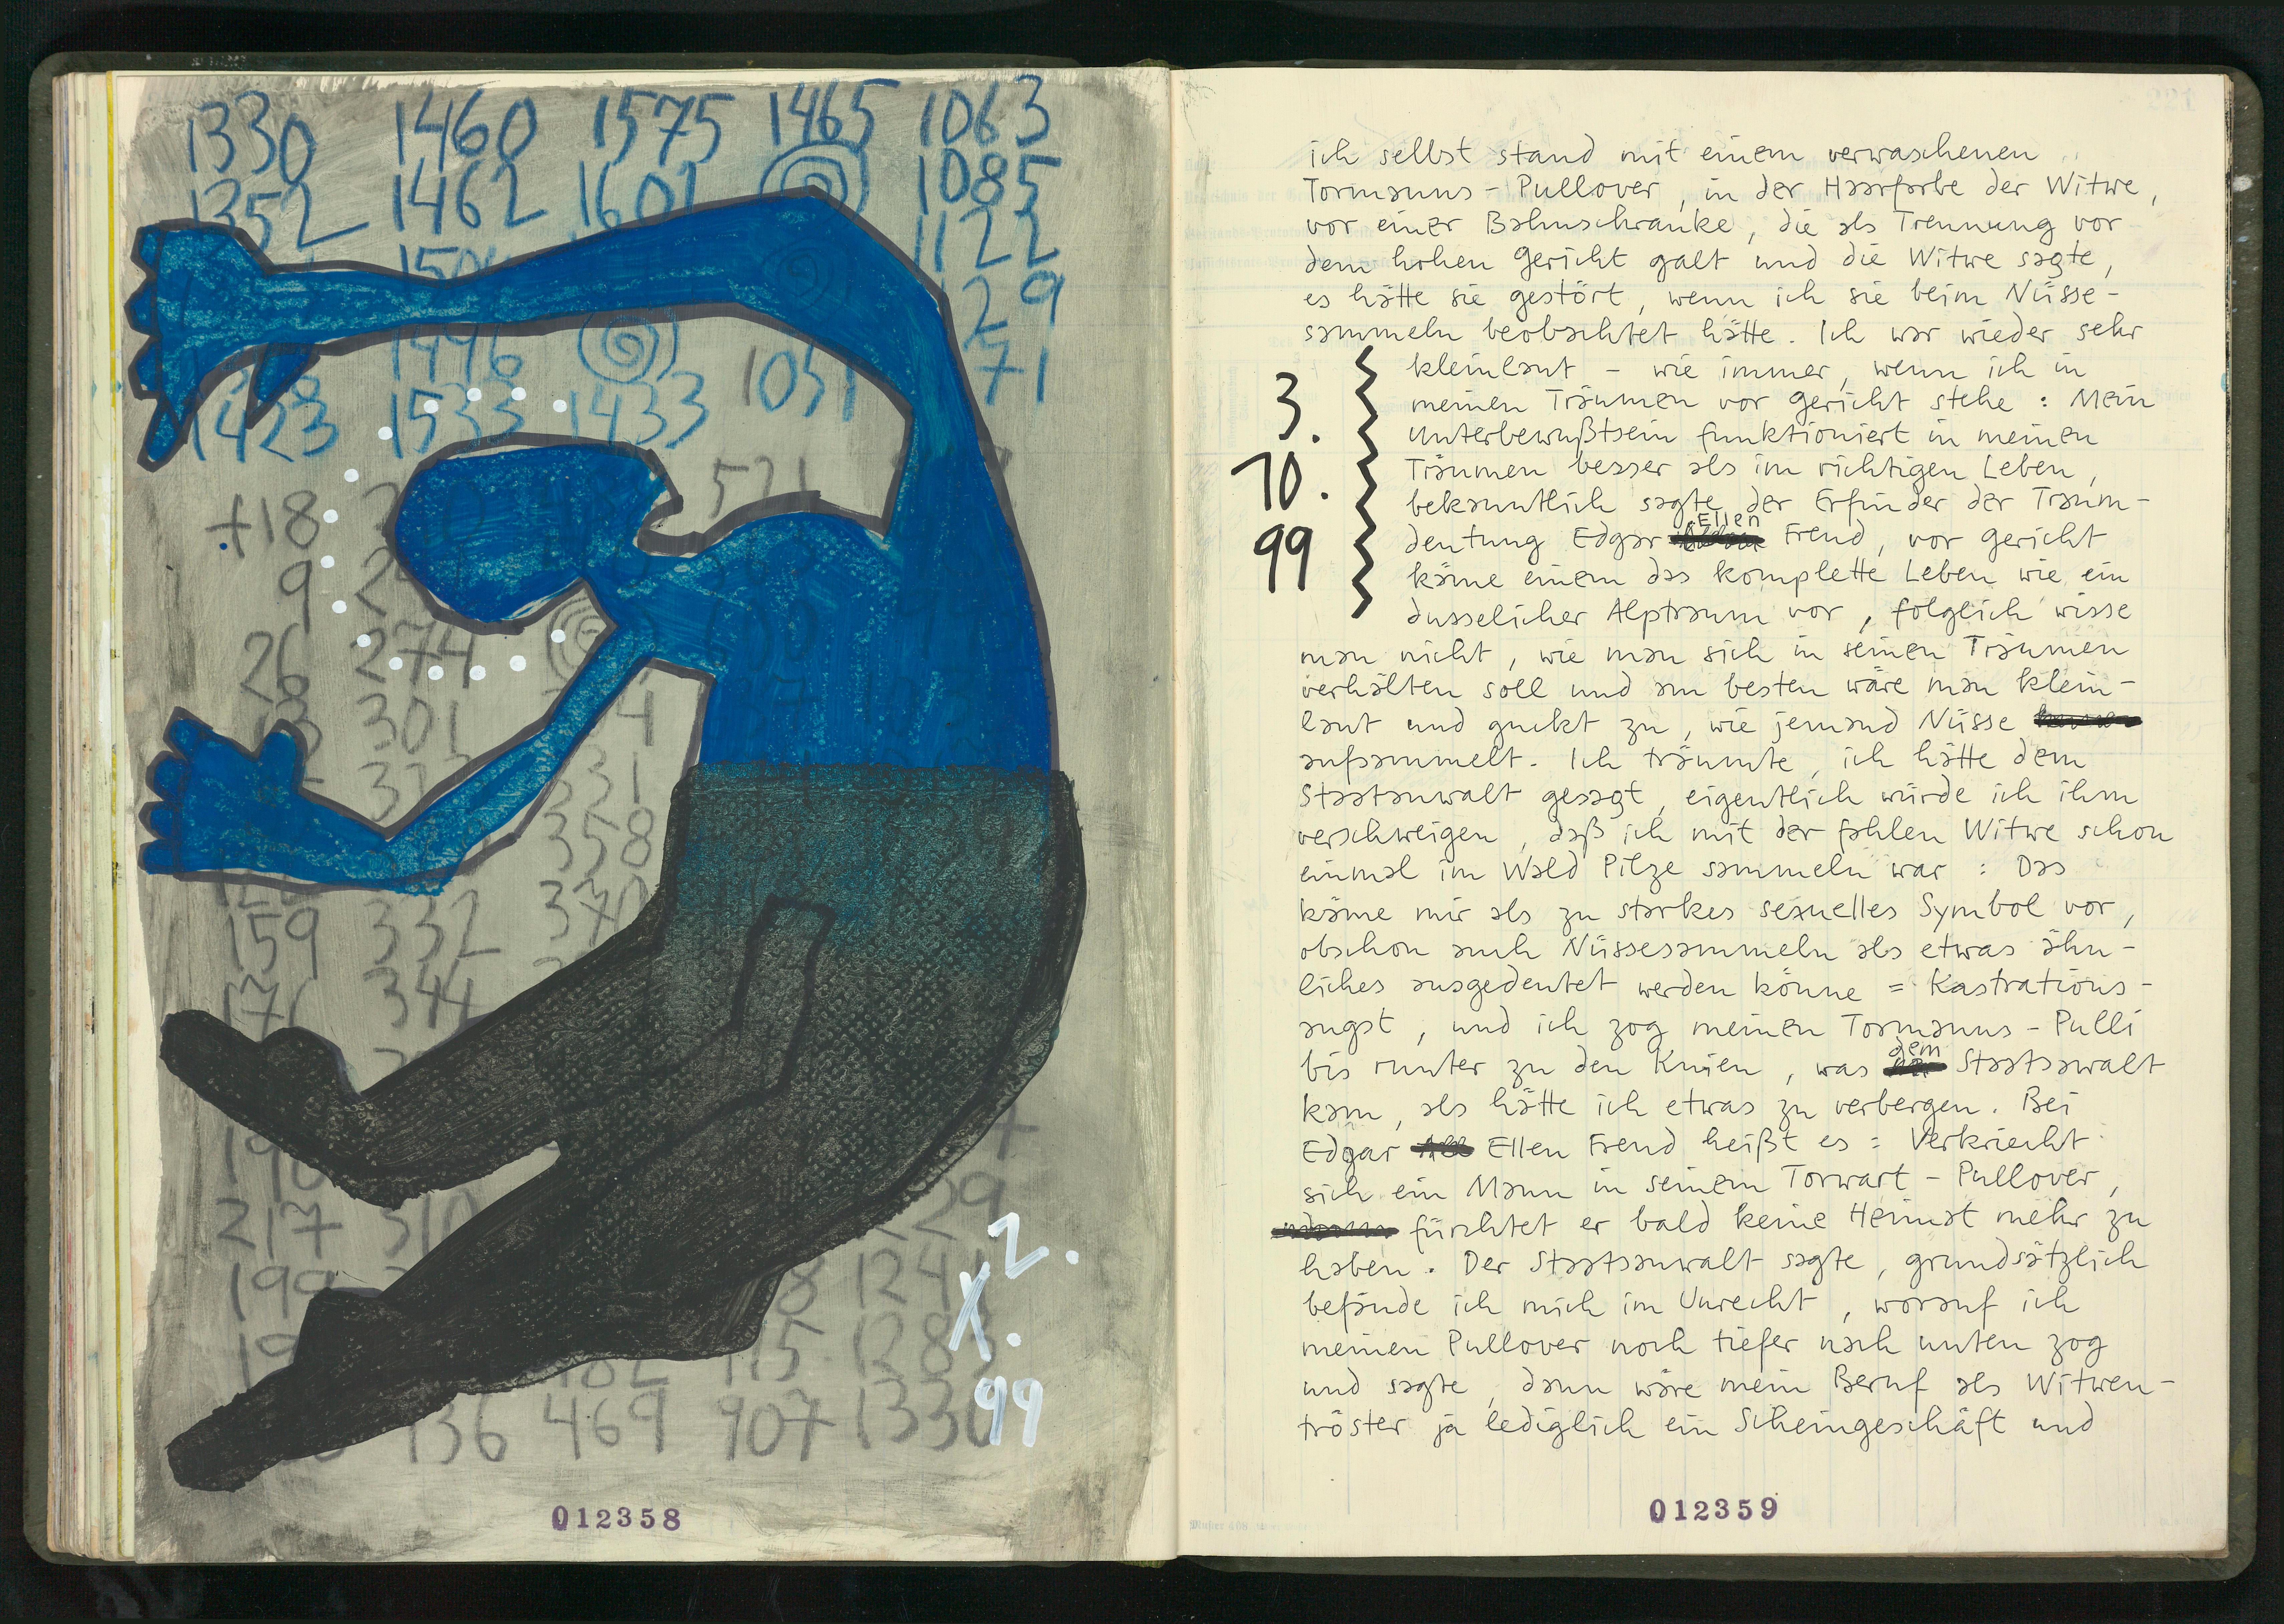 1330 1460 1575 1465 1063
1352 1462 1601 1085
1122
29
1496 1051 71
1423 1533 1433
+18 521
9
26 274
301 4
331
358
159 332 370
176 344
217 310 29
199 8 124
19 482 115 128
136 469 907 1330
2.
X.
99
012358
ich selbst stand mit einem verwaschenen
Tormanns-Pullover, in der Haarfarbe der Witwe,
vor einer Bahnschranke, die als Trennung vor
dem hohen Gericht galt und die Witwe sagte,
es hätte sie gestört, wenn ich sie beim Nüsse-
sammeln beobachtet hätte. Ich war wieder sehr
kleinlaut – wie immer, wenn ich in
3. meinen Träumen vor Gericht stehe: Mein
Unterbewußtsein funktioniert in meinen
10. Träumen besser als im richtigen Leben,
bekanntlich sagte der Erfinder der Traum-
99 deutung Edgar Ellen Freud, vor Gericht
käme einem das komplette Leben wie ein
dusselicher Alptraum vor, folglich wisse
man nicht, wie man sich in seinen Träumen
verhalten soll und am besten wäre man klein-
laut und guckt zu, wie jemand Nüsse
aufsammelt. Ich träumte, ich hätte dem
Staatanwalt gesagt, eigentlich würde ich ihm
verschweigen, daß ich mit der fahlen Witwe schon
einmal im Wald Pilze sammeln war: Das
käme mir als zu starkes sexuelles Symbol vor,
obschon auch Nüssesammeln als etwas ähn-
liches ausgedeutet werden könne = Kastrations-
angst, und ich zog meinen Tormanns-Pulli
bis runter zu den Knien, was dem Staatsawalt
kam, als hätte ich etwas zu verbergen. Bei
Edgar Ellen Freud heißt es: Verkriecht
sich ein Mann in seinem Torwart-Pullover,
fürchtet er bald keine Heimat mehr zu
haben. Der Staatsanwalt sagte, grundsätzlich
befände ich mich im Unrecht, worauf ich
meinen Pullover noch tiefer nach unten zog
und sagte, dann wäre mein Beruf als Witwen-
tröster ja lediglich ein Scheingeschäft und
012359